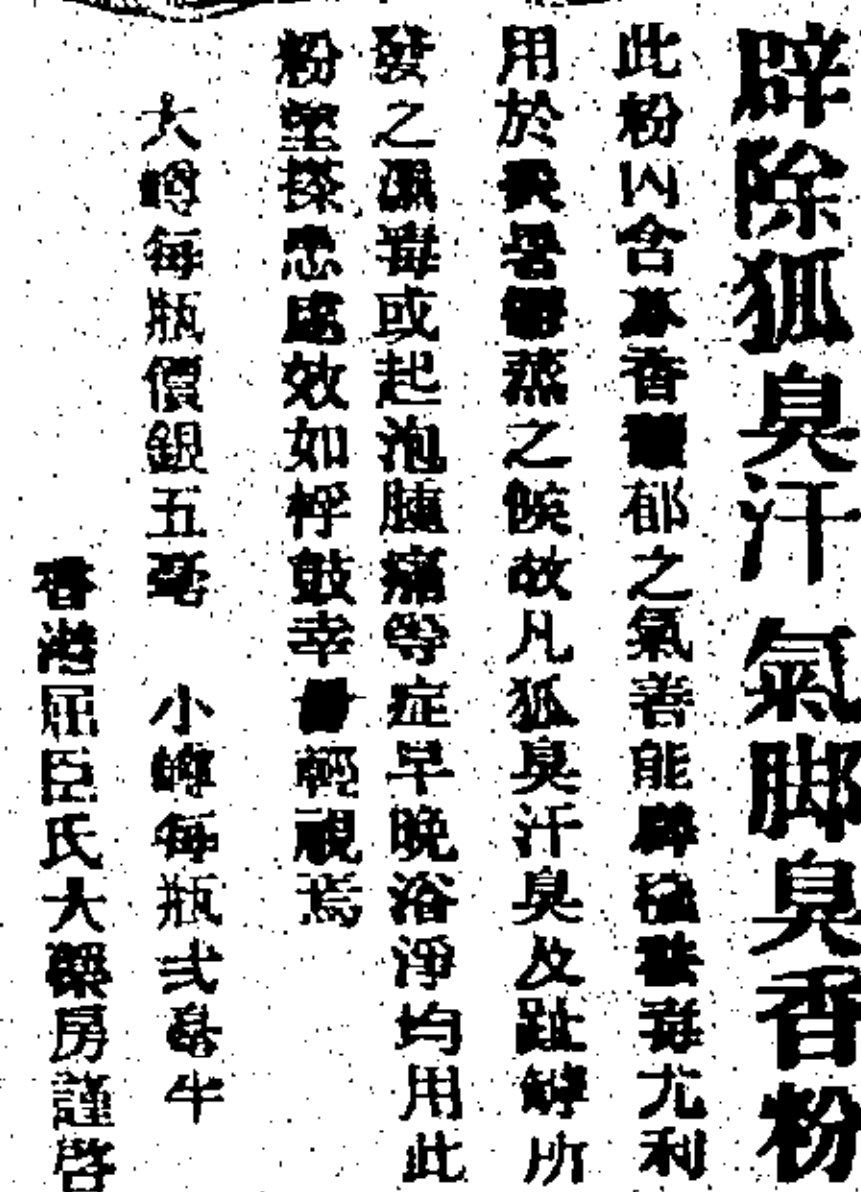 辟除狐臭汗氣脚臭香粉
此粉內含 香 郁之氣善能辟穢 毒尤利
用於炎暑鬱蒸之候故凡狐臭汗臭及趾罅所
發之濕毒或起泡腫痛等症早晚浴淨均用此
粉塗搽患處效如桴鼓幸 輕視焉
大罇每瓶價銀五毫 小罇每瓶弍毫半
香港屈臣氏大藥房謹啓